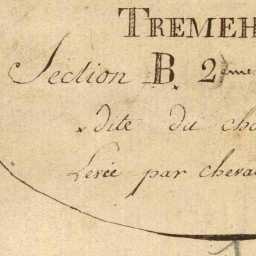 TREMEH
Section B. 2ème
dite du cho
Levée par cheva